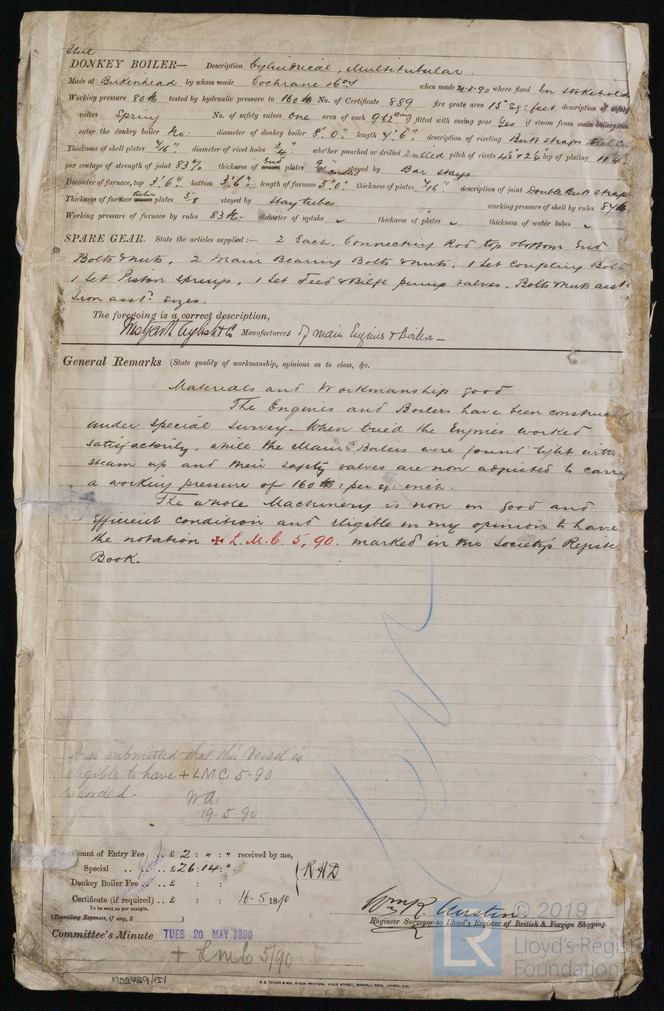 Steel
DONKEY BOILER— Description Cylindrical, Multitubular.
Made at Birkenhead by whom made Cochrane & Coy when made 4-3-90 where fixed In Stokehold
Working pressure 80 lb tested by hydraulic pressure to 160 lb No. of Certificate 889 fire grate area 15 sq: feet description of safety
valves Spring No. of safety valves one area of each 9.62 " fitted with easing gear Yes if steam from main boilers can
enter the donkey boiler No. diameter of donkey boiler 8'.0" length 7'.6" description of riveting Butt straps
Thickness of shell plates 7/16" diameter of rivet holes 3/4" whether punched or drilled Drilled pitch of rivets lap of plating
per centage of strength of joint 83% thickness of end plates stayed by Bar stays
Diameter of furnace, top 3'.6" bottom 3'.6" length of furnace 5'.0" thickness of plates 7/16" description of joint Double Butt straps
Thickness of furnace tube plates 5/8 stayed by Stay tubes working pressure of shell by rules
Working pressure of furnace by rules 83 lb. diameter of uptake " thickness of plates " thickness of water tubes "
SPARE GEAR. State the articles supplied:— 2 Each, Connecting Rod top & bottom End
Bolts & nuts, 2 Main Bearing Bolts & nuts, 1 Set Coupling Bolts
1 Set Piston springs, 1 Set Feed & Bilge pump valves, Bolts & nuts asstd
Iron asstd. sizes.
The foregoing is a correct description,
Manufacturers of main Engines & Boilers—
General Remarks (State quality of workmanship, opinions as to class, &c.
Materials and Workmanship good
The Engines and Boilers have been constructed
under Special Survey. When tried the Engines worked
satisfactorily, while the Main Boilers were found tight with
steam up and their safety valves are now adjusted to carry
a working pressure of 160 lb: per sq: inch.
The whole Machinery is now in good and
efficient condition and eligible in my opinion to have
the notation ✠ L.M.C. 5, 90. marked in the Society's Register
Book.
It is submitted that this Vessel is
eligible to have + LMC 5-90
recorded.
W.A.
19-5-90
Amount of Entry Fee .. £ 2 : " : " received by me,
Special .. .. £26:14: "
R.H.D
Donkey Boiler Fee .. £ : :
Certificate (if required) .. £ : : 16-5 1890
To be sent as per margin.
(Travelling Expenses, if any, £ )
Wm R. Austin.
Engineer Surveyor to Lloyd's Register of British & Foreign Shipping.
Committee's Minute TUES 20 MAY 1890
+ LMC 5/90
© 2019
LR
Lloyd's Register
Foundation